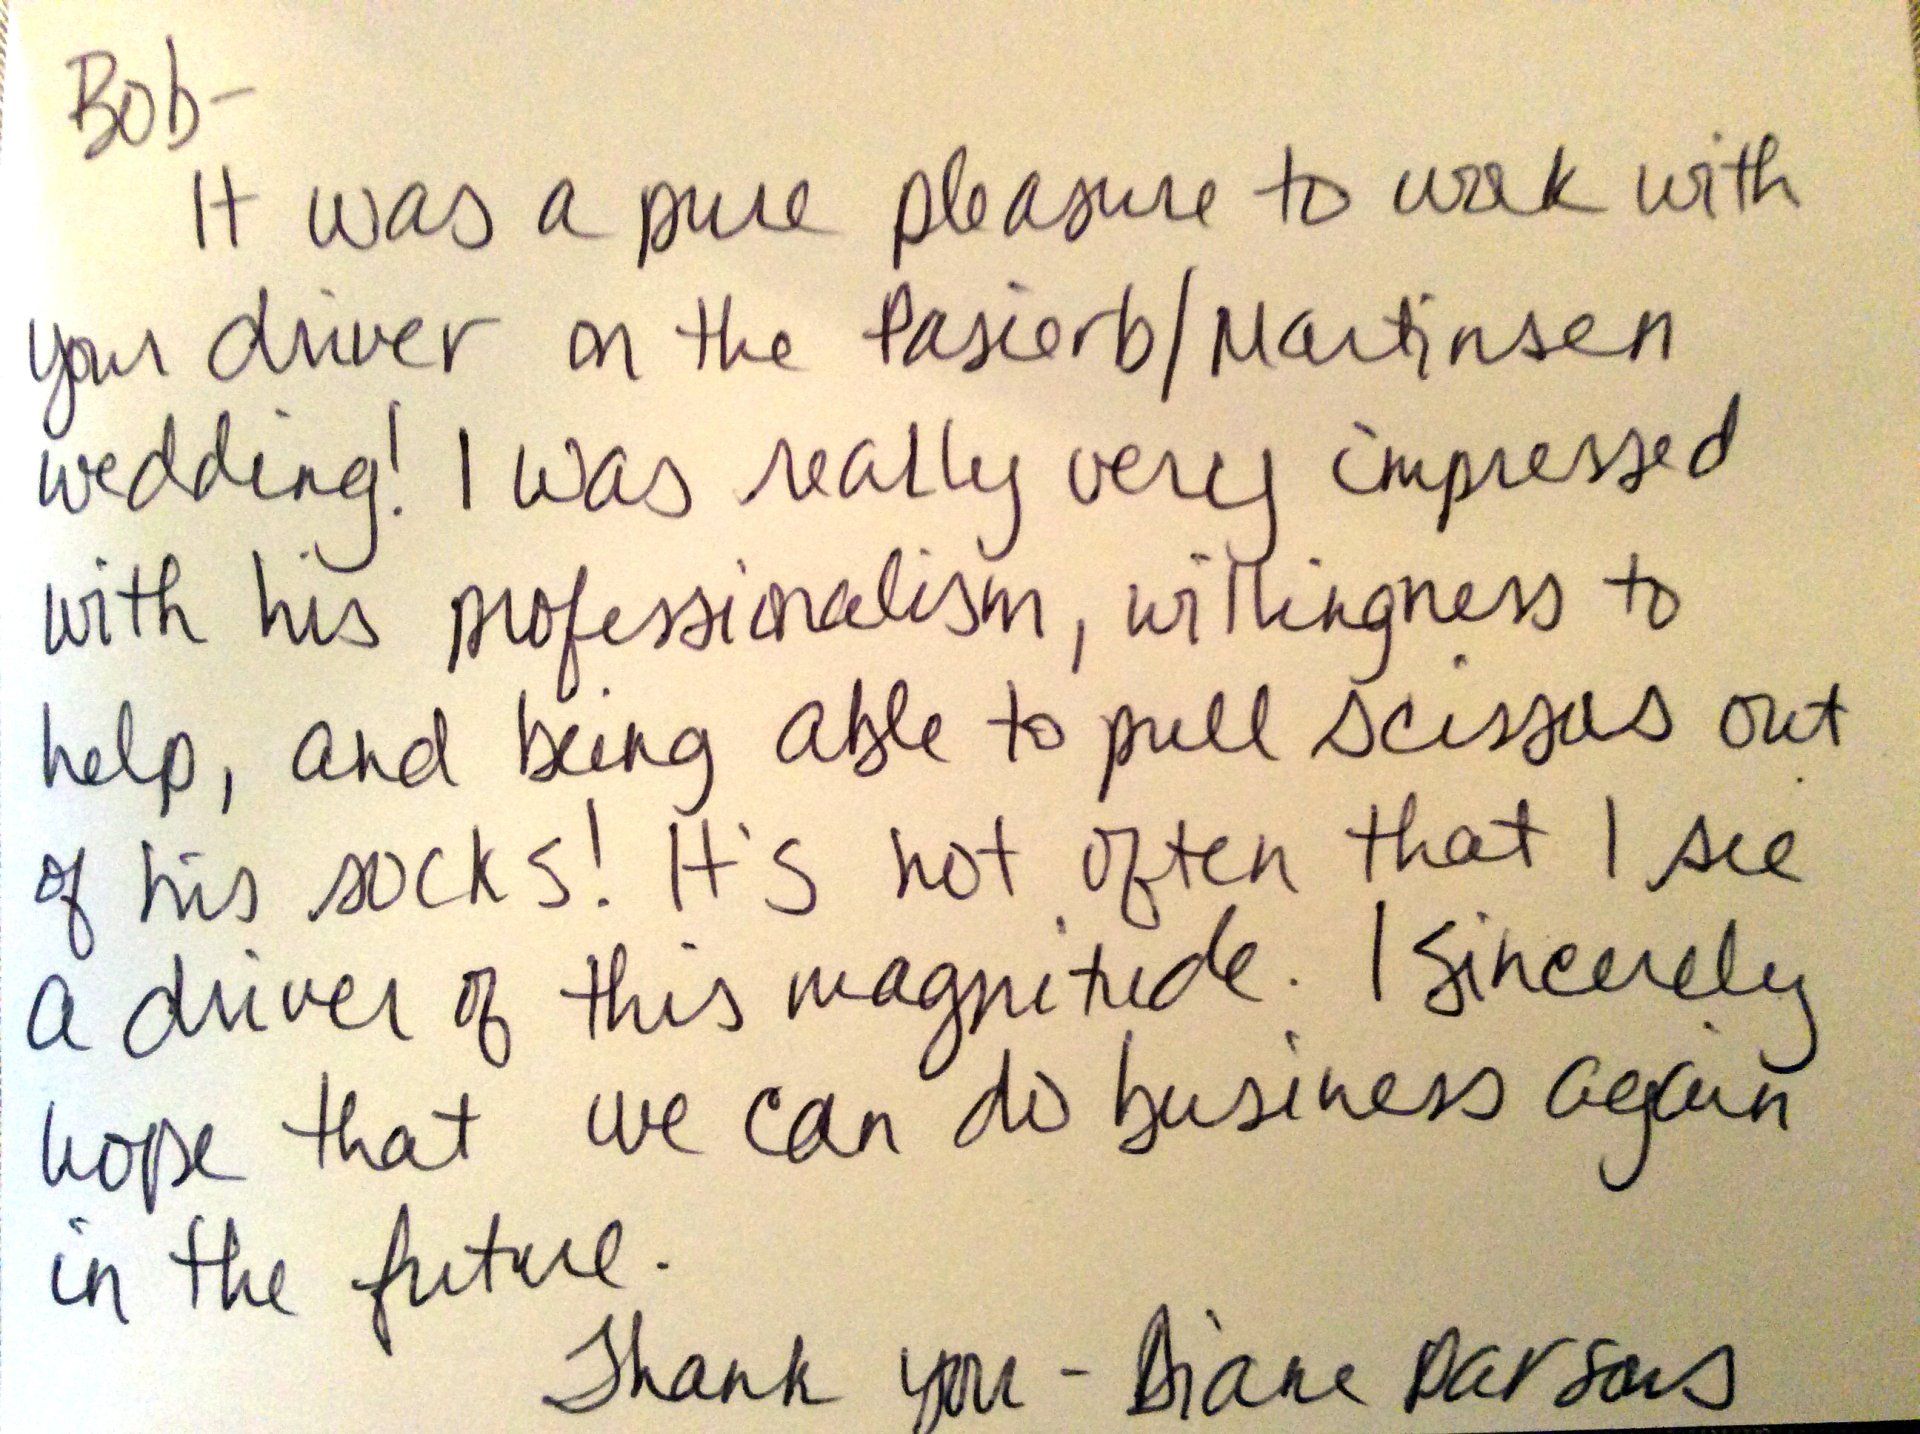 Bob-
It was a pure pleasure to work with
your driver on the Pasierb/Martinsen
wedding! I was really very impressed
with his professionalism, willingness to
help, and being able to pull scissors out
of his socks! It's not often that I see
a driver of this magnitude. I sincerely
hope that we can do business again
in the future.
Thank you - Diane Parsons